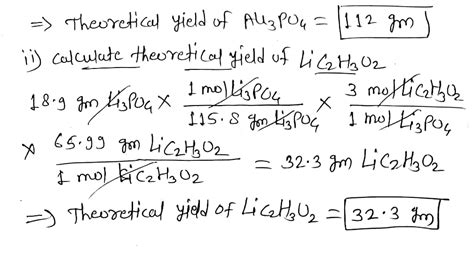 => Theoretical yield of Au3PO4 = 112 gm
ii) calculate theoretical yield of LiC2H3O2
18.9 gm Li3PO4 × 1 mol Li3PO4 / 115.8 gm Li3PO4 × 3 mol LiC2H3O2 / 1 mol Li3PO4
× 65.99 gm LiC2H3O2 / 1 mol LiC2H3O2 = 32.3 gm LiC2H3O2
=> Theoretical yield of LiC2H3O2 = 32.3 gm